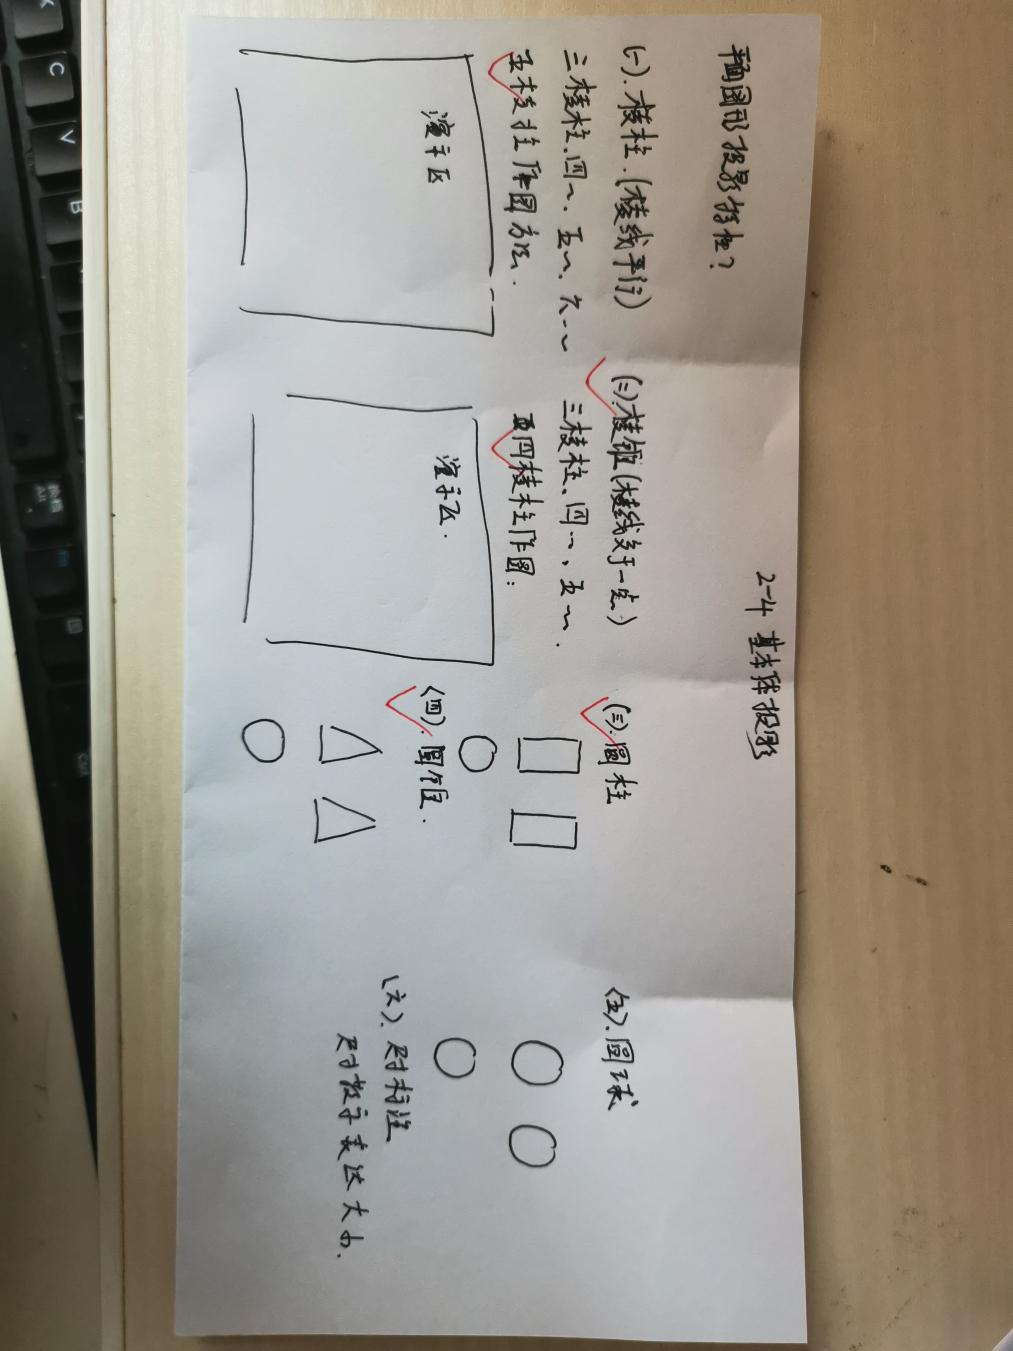 2-4 基本体投影
平面图形投影特性？
(一).棱柱.(棱线平行)
三棱柱、四～、五～、六～
五棱柱作图方法.
演示区
(二).棱锥(棱线交于一点)
三棱柱、四～、五～.
四棱柱作图：
演示区.
(三).圆柱
(四).圆锥.
(五).圆球
(六).尺寸标注
尺寸数字表达大小.
C
V
B